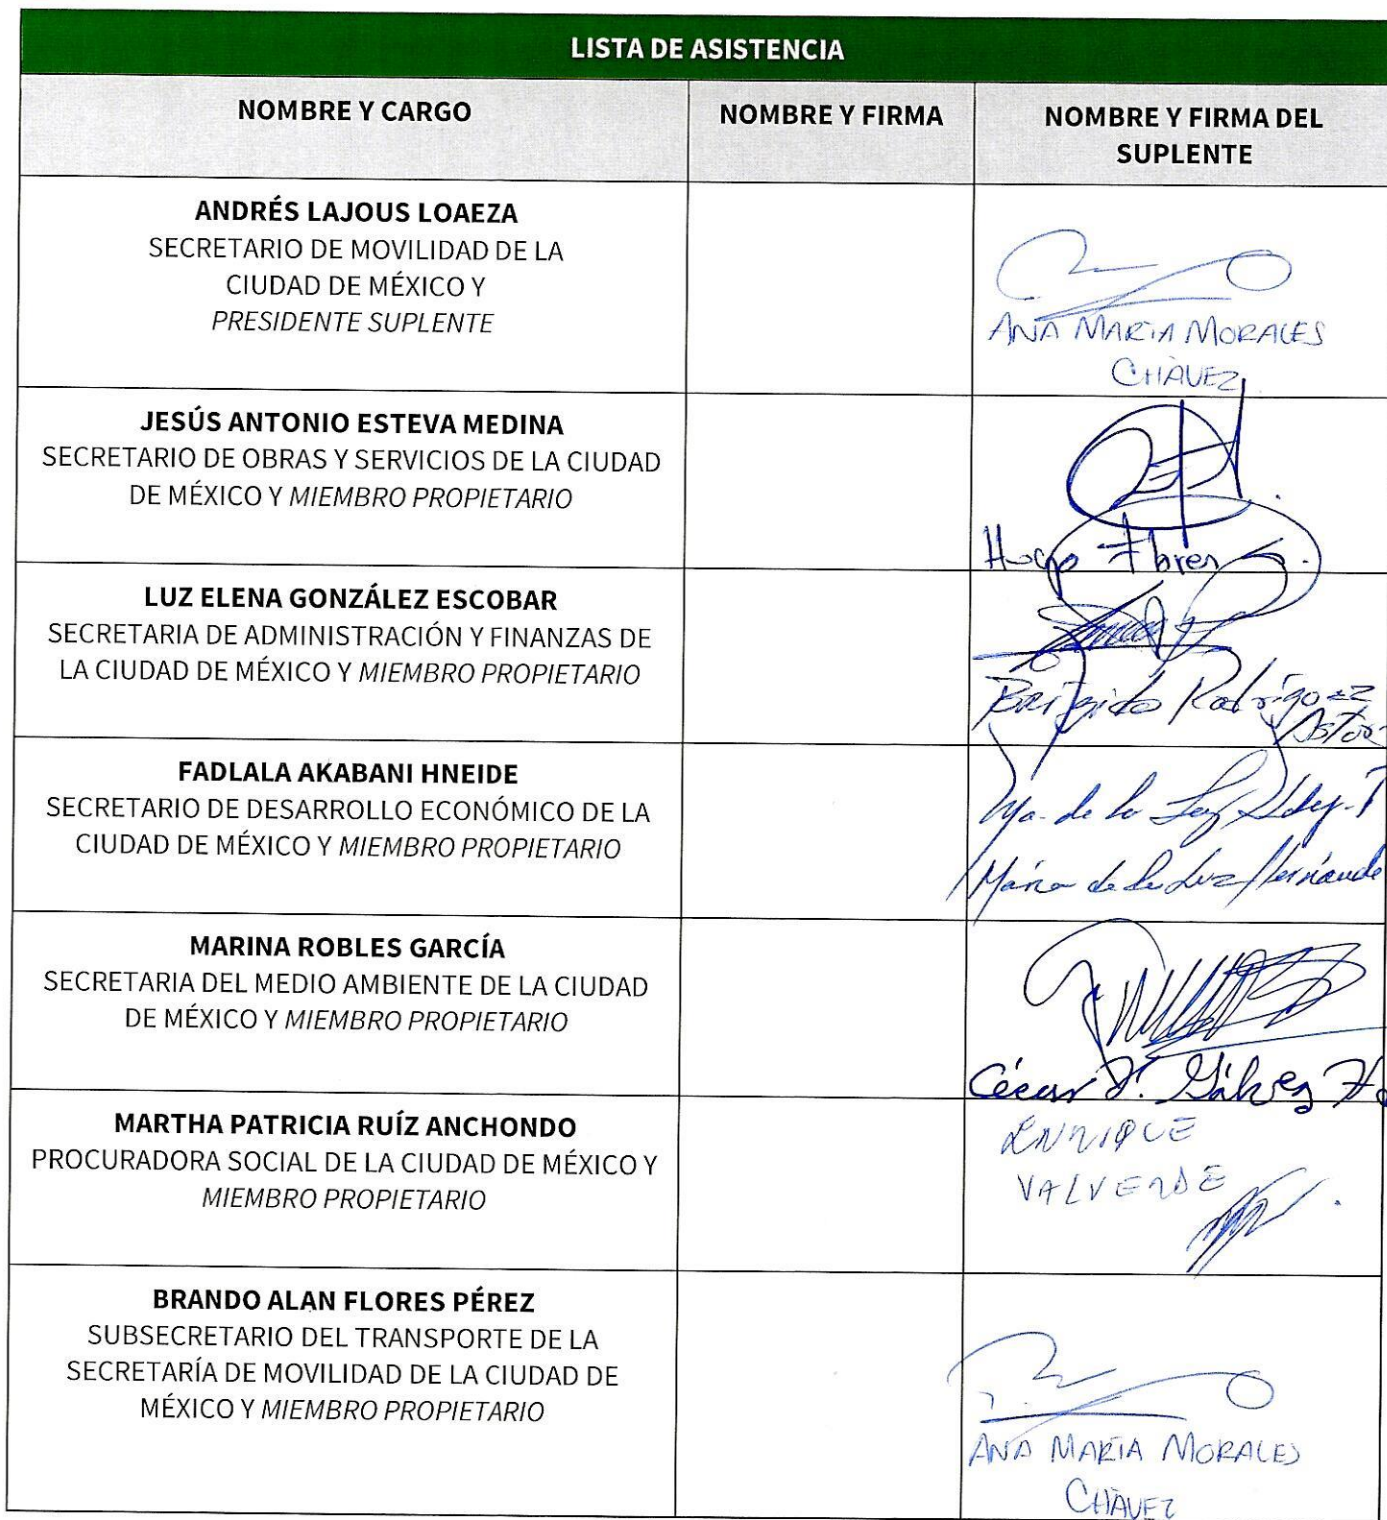 LISTA DE ASISTENCIA
NOMBRE Y CARGO
NOMBRE Y FIRMA
NOMBRE Y FIRMA DEL
SUPLENTE
ANDRÉS LAJOUS LOAEZA
SECRETARIO DE MOVILIDAD DE LA
CIUDAD DE MÉXICO Y
PRESIDENTE SUPLENTE
ANA MARIA MORALES
CHÁVEZ
JESÚS ANTONIO ESTEVA MEDINA
SECRETARIO DE OBRAS Y SERVICIOS DE LA CIUDAD
DE MÉXICO Y MIEMBRO PROPIETARIO
Hugo Flores
LUZ ELENA GONZÁLEZ ESCOBAR
SECRETARIA DE ADMINISTRACIÓN Y FINANZAS DE
LA CIUDAD DE MÉXICO Y MIEMBRO PROPIETARIO
Brígido Rodríguez
FADLALA AKABANI HNEIDE
SECRETARIO DE DESARROLLO ECONÓMICO DE LA
CIUDAD DE MÉXICO Y MIEMBRO PROPIETARIO
Ma. de la Luz
María de la Luz Hernánde
MARINA ROBLES GARCÍA
SECRETARIA DEL MEDIO AMBIENTE DE LA CIUDAD
DE MÉXICO Y MIEMBRO PROPIETARIO
César Gálvez
MARTHA PATRICIA RUÍZ ANCHONDO
PROCURADORA SOCIAL DE LA CIUDAD DE MÉXICO Y
MIEMBRO PROPIETARIO
ENRIQUE
VALVERDE
BRANDO ALAN FLORES PÉREZ
SUBSECRETARIO DEL TRANSPORTE DE LA
SECRETARÍA DE MOVILIDAD DE LA CIUDAD DE
MÉXICO Y MIEMBRO PROPIETARIO
ANA MARÍA MORALES
CHÁVEZ